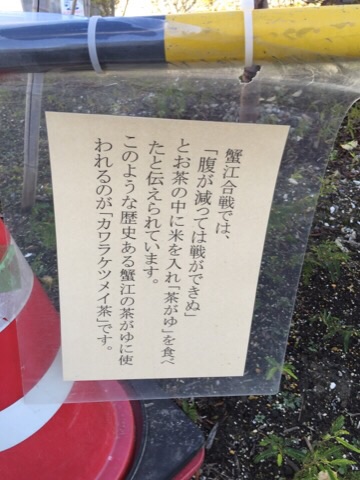 蟹江合戦では、
「腹が減っては戦ができぬ」
とお茶の中に米を入れ「茶がゆ」を食べ
たと伝えられています。
このような歴史ある蟹江の茶がゆに使
われるのが「カワラケツメイ茶」です。